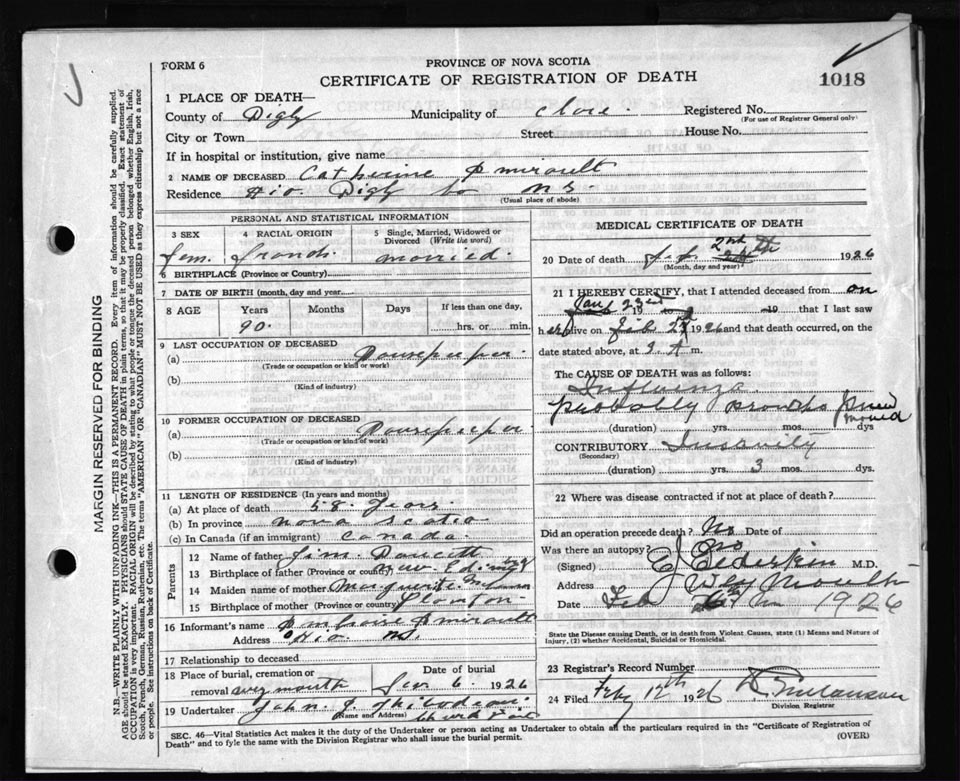 FORM 6
PROVINCE OF NOVA SCOTIA
CERTIFICATE OF REGISTRATION OF DEATH
1018
1 PLACE OF DEATH—
County of Digby Municipality of Clare. Registered No.
(For use of Registrar General only)
City or Town Street House No.
If in hospital or institution, give name
2 NAME OF DECEASED Catherine
Residence Digby Co N S.
(Usual place of abode)
PERSONAL AND STATISTICAL INFORMATION
3 SEX 4 RACIAL ORIGIN 5 Single, Married, Widowed or Divorced (Write the word)
Fem. French. married.
6 BIRTHPLACE (Province or Country)
7 DATE OF BIRTH (month, day and year)
8 AGE Years Months Days If less than one day,
90. hrs. or min.
9 LAST OCCUPATION OF DECEASED
(a) Housekeeper.
(Trade or occupation or kind or work)
(b)
(Kind of industry)
10 FORMER OCCUPATION OF DECEASED
(a) Housekeeper
(Trade or occupation or kind of work)
(b)
(Kind of industry)
11 LENGTH OF RESIDENCE (In years and months)
(a) At place of death 58 Years
(b) In province nova scotia
(c) In Canada (if an immigrant) Canada.
Parents
12 Name of father Jim Doucett
13 Birthplace of father (Province or country)
14 Maiden name of mother Marguerite
15 Birthplace of mother (Province or country)
16 Informant's name
Address N.S.
17 Relationship to deceased
18 Place of burial, cremation or removal weymouth Date of burial 6. 1926
19 Undertaker John J.
(Name and Address) Church Point
MEDICAL CERTIFICATE OF DEATH
20 Date of death 2nd 1926
(Month, day and year)
21 I HEREBY CERTIFY, that I attended deceased from on
Jan 23rd 19 19 that I last saw
h er alive on Feb 1926 and that death occurred, on the
date stated above, at m.
The CAUSE OF DEATH was as follows:
Influenza
probably
(duration) yrs. mos. dys
CONTRIBUTORY
(Secondary)
(duration) yrs. 3 mos. dys.
22 Where was disease contracted if not at place of death?
Did an operation precede death? No Date of
Was there an autopsy? No
(Signed) Elderkin M.D.
Address Weymouth
Date Feb 1926
State the Disease causing Death, or in death from Violent Causes, state (1) Means and Nature of Injury, (2) whether Accidental, Suicidal or Homicidal.
23 Registrar's Record Number
24 Filed Feby 12th 1926
Division Registrar
SEC. 46—Vital Statistics Act makes it the duty of the Undertaker or person acting as Undertaker to obtain all the particulars required in the "Certificate of Registration of Death" and to fyle the same with the Division Registrar who shall issue the burial permit.
(OVER)
MARGIN RESERVED FOR BINDING
N.B.—WRITE PLAINLY WITH UNFADING INK—THIS IS A PERMANENT RECORD. Every item of information should be carefully supplied.
AGE should be stated EXACTLY. PHYSICIANS should STATE CAUSE OF DEATH in plain terms, so that it may be properly classified. Exact statement of
OCCUPATION is very important. RACIAL ORIGIN will be described by stating to what people or tongue the deceased person belonged whether English, Irish,
Scotch, French, German, Russian, Ruthenian, etc. The terms "AMERICAN" OR "CANADIAN" MUST NOT BE USED as they express citizenship but not a race
or people. See instructions on back of Certificate.